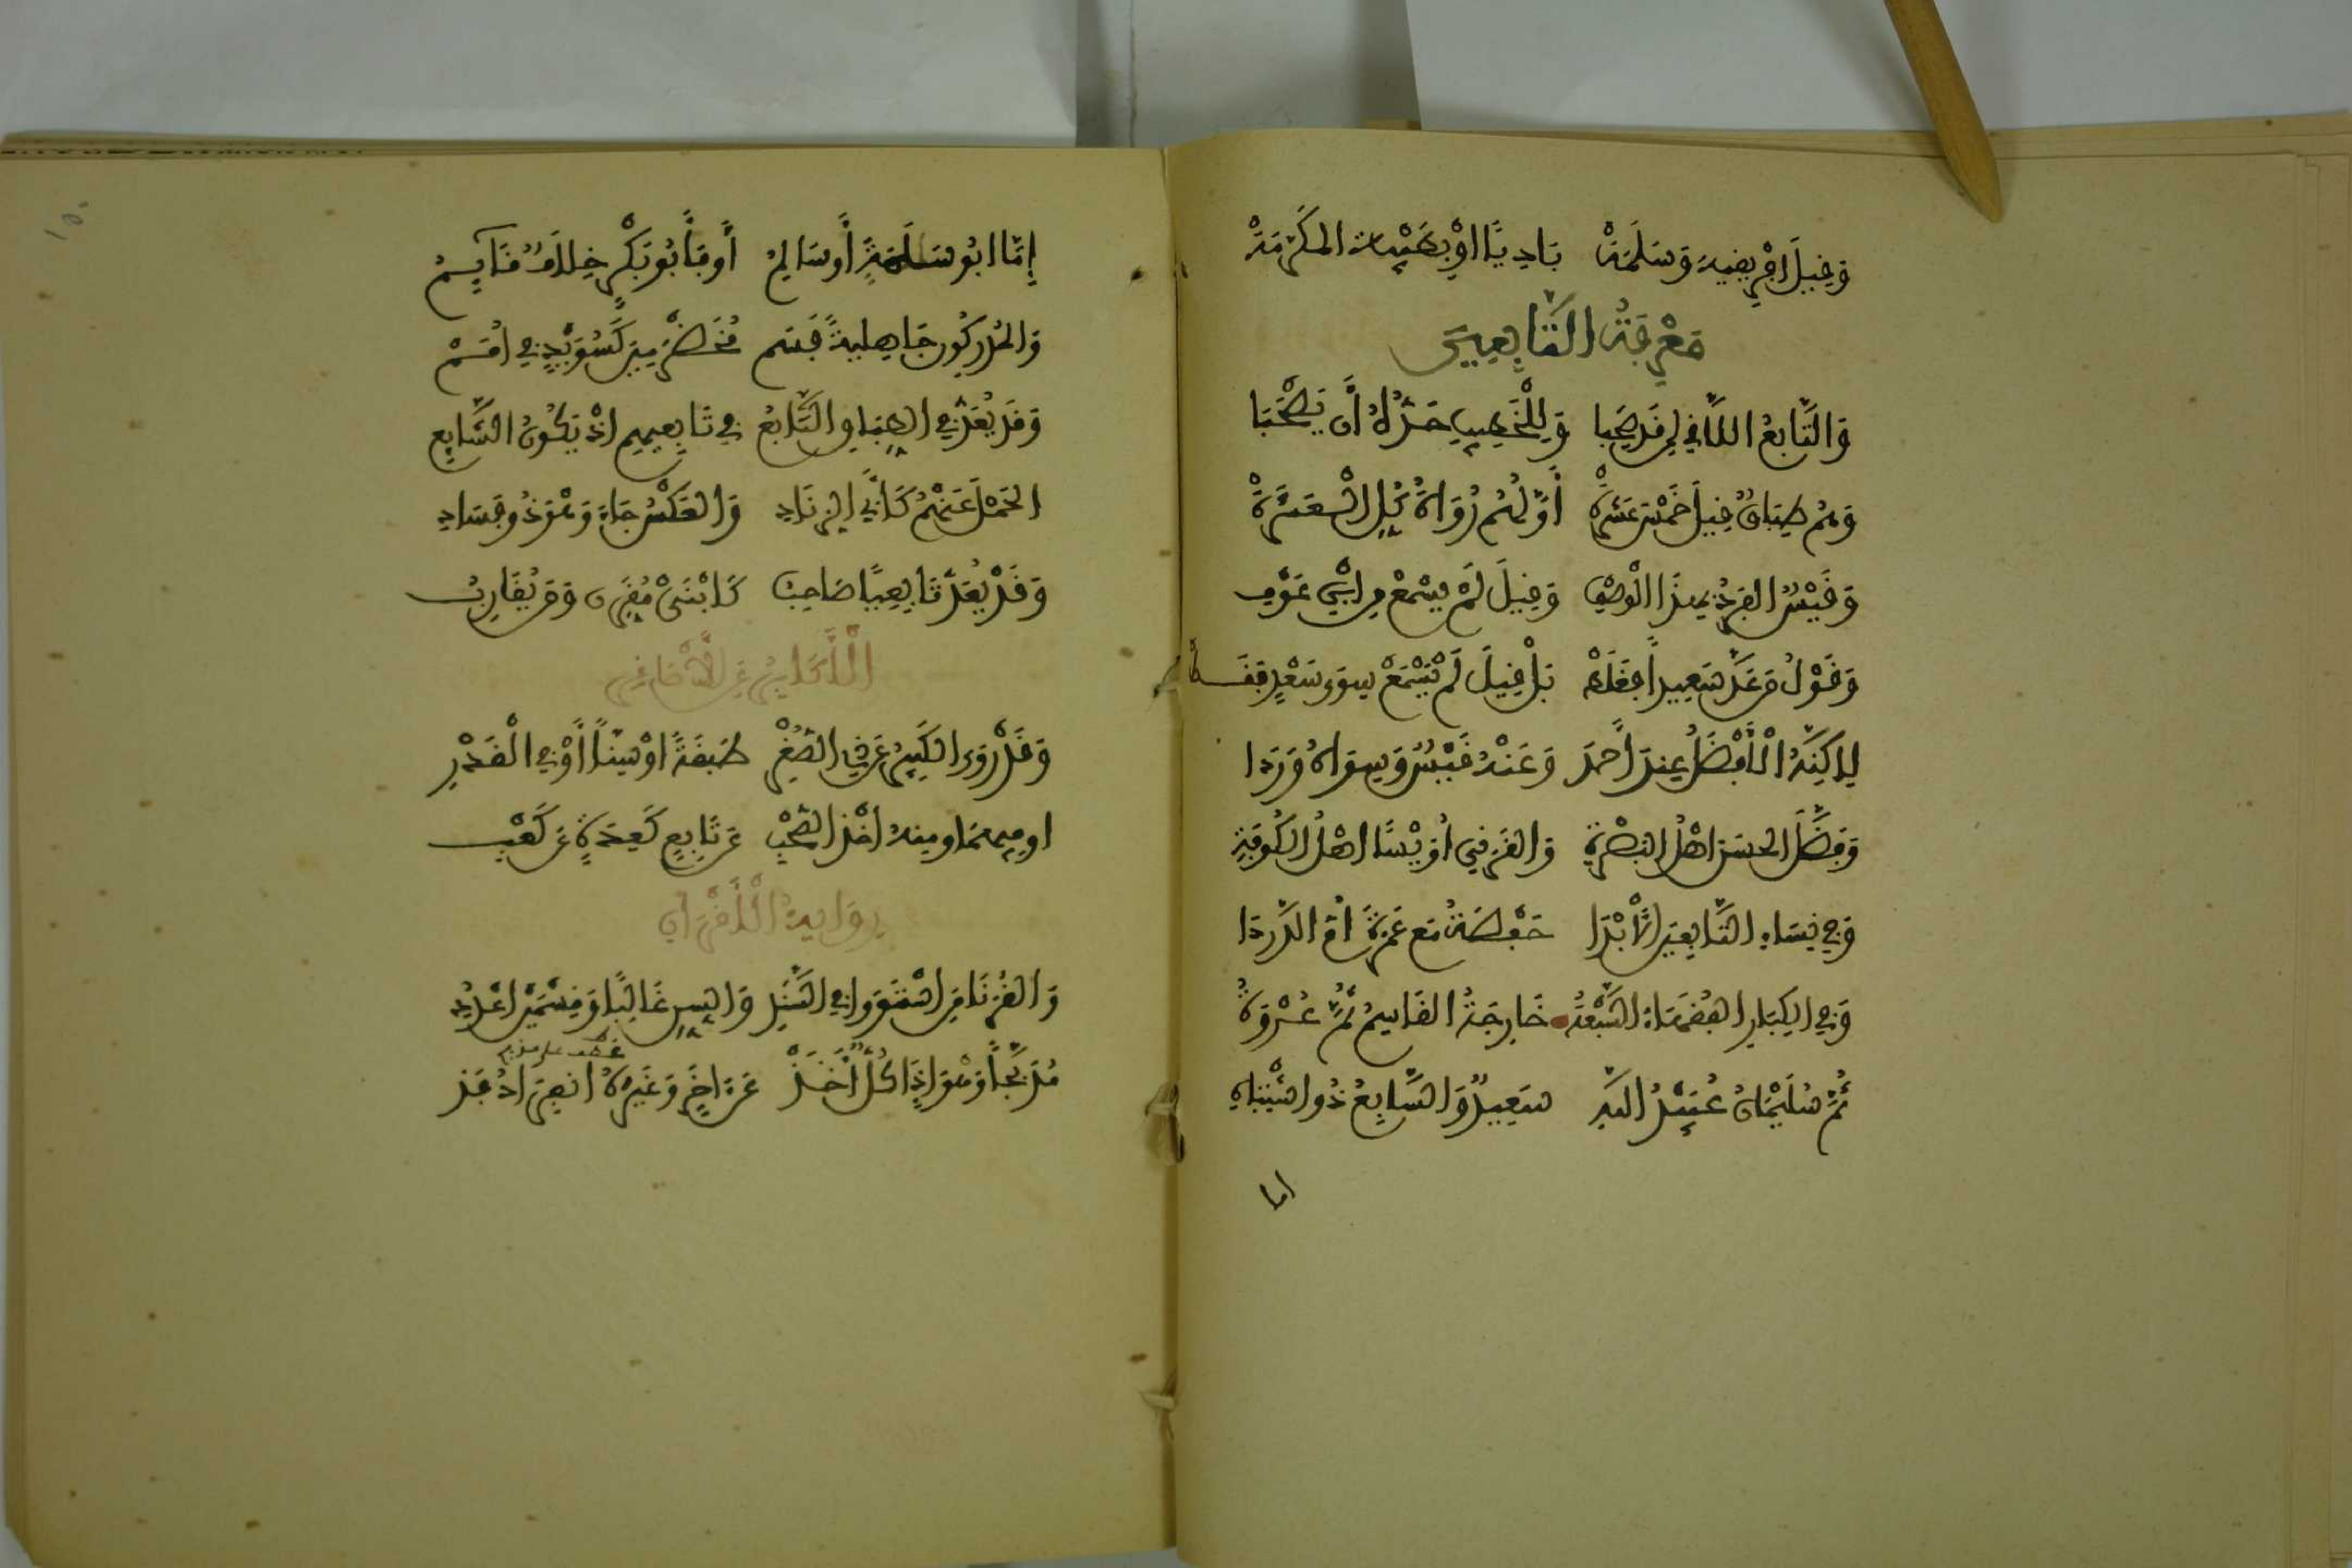 وَقِيلَ اِفْرِيقِيَةٍ وَسَلَمَةْ بَادِيًا اوْ بِطَيْبَةَ المكَرَّمَةْ
مَعْرِفَةُ التَّابِعِينَ
وَالتَّابِعُ اللَّاقِي لِمَن قَد صَحِبَا وَلِلْخَطِيبِ حَدُّهُ أَن يَصْحَبَا
وَهُم طِبَاقٌ قِيلَ خَمْسَ عَشْرَةْ أَوَّلُهُم رُوَاةُ كُلِّ الْعَشَرَةْ
وَقَيْسٌ الفَرْدُ بِهذَا الْوَصْفِ وَقِيلَ لَمْ يَسْمَعْ مِنِ ابْنِ عَوْفِ
وَقَوْلُ مَن عَدَّ سَعِيداً فَغَلَطْ بَلْ قِيلَ لَمْ يَسْمَعْ سِوَى سَعْدٍ فَقَطْ
لكِنَّهُ الْأَفْضَلُ عِندَ أَحمَدَ وَعَنْهُ قَيْسٌ وَسِوَاهُ وَرَدَا
وَفَضَّلَ الحسَنَ اهْلُ البَصْرَةِ وَالقَرَنِي أُوَيْسًا اهْلُ الكُوفَةِ
وَفِي نِسَاءِ التَّابِعِينَ الْأَبْدَا حَفْصَةُ مَع عَمْرَةَ أُمِّ الدَّردَا
وَفِي الكِبَارِ الفُقَهَاءُ السَّبْعَةُ خَارِجَةُ القَاسِمُ ثُمَّ عُرْوَةُ
ثُمَّ سُلَيْمَانُ عُبَيْدُ اللهِ سَعِيدٌ وَالسَّابِعُ ذُو اشْتِبَاهِ
اما
إِمَّا ابُو سَلَمَةٍ أَو سَالِمُ أَو فَأَبُو بَكْرٍ خِلَافٌ قَائِمُ
وَالمُدرِكُونَ جَاهِلِيةً فَسَم مُخَضْرَمِينَ كَسُوَيْدٍ فِي أمَمْ
وَقَد يُعَدُّ فِي الطِّبَاقِ التَّابِعُ فِي تَابِعِيهِم اذْ يَكُونُ الشَّايِع
الحَمْلَ عَنْهُمْ كَأَبِي الزِنَادِ وَالعَكْسُ جَاءَ وَهْوَ ذُو فَسَادِ
وَقَدْ يُعَدُّ تَابِعِيًّا صَاحِبُ كَابْنَيْ مُقَرِّنٍ وَمَن يُقَارِبُ
الْأَكَابِرُ عَنِ الْأَصَاغِرِ
وَقَدْ رَوَى الكَبِيرُ عَن ذِي الصُّغْرِ طَبَقَةً اوْ سِنّاً أَوْ فِي الْقَدْرِ
او فِيهِمَا وَمِنهُ أَخْذُ الصَّحْبِ عَن تَابِعٍ كَعِدَةٍ عَن كَعْبِ
رِوَايةُ الْأَقْرَانِ
وَالقُرَنَا مَنِ اسْتَوَوا فِي السَّنَدِ وَالسِنِّ غَالِبًا وَقِسْمَيْنِ اعْدُدِ
مُدَبَّجاً وَهْوَ اِذَا كُلٌّ أَخَذْ عَن اخَرٍ وَغَيْرَهُ انفِرَادُ فَذ